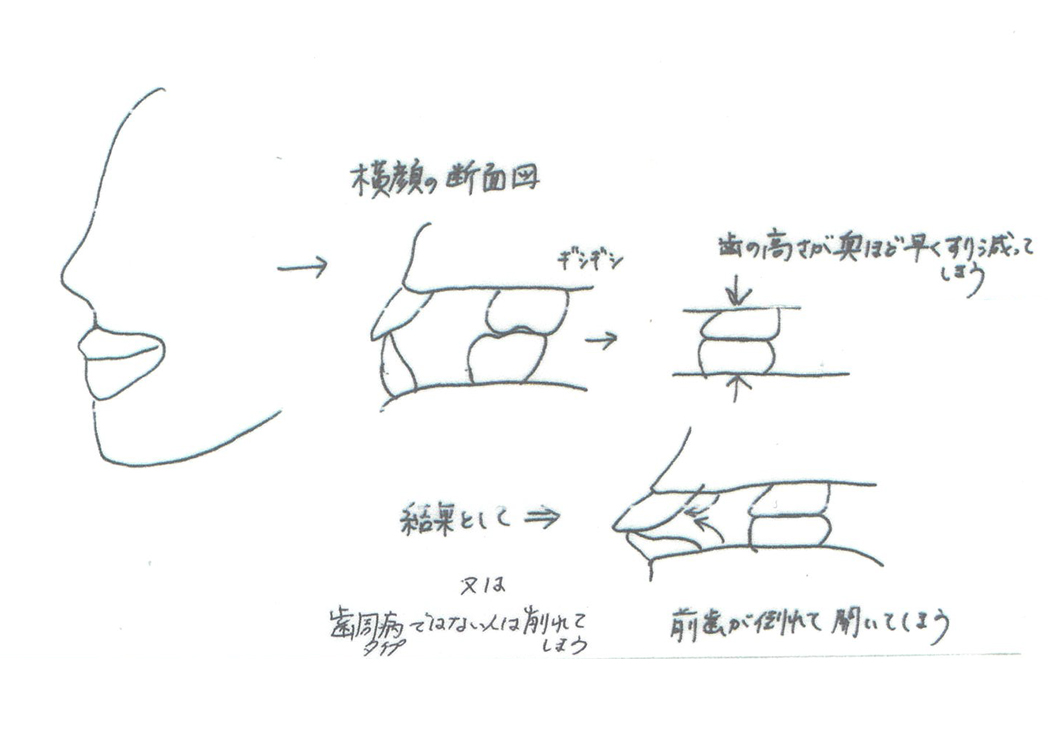 横顔の断面図
ギシギシ
歯の高さが奥ほど早くすり減って
しまう
結果として ⇒
又は
歯周病ではない人は削れて
タイプ
しまう
前歯が倒れて開いてしまう